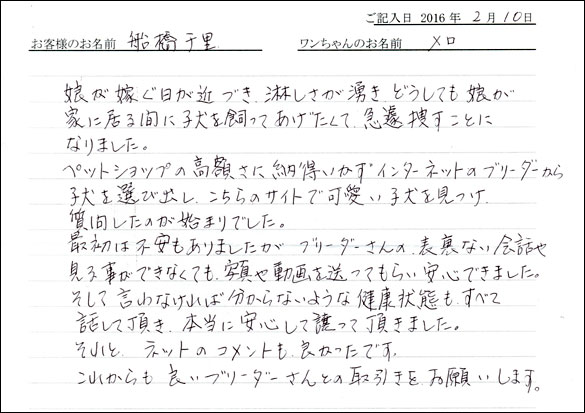 ご記入日 2016 年 2 月 10 日
お客様のお名前 船橋千里 ワンちゃんのお名前 メロ
娘が嫁ぐ日が近づき、淋しさが湧き どうしても娘が
家に居る間に子犬を飼ってあげたくて、急遽捜すことに
なりました。
ペットショップの高額さに納得いかず インターネットのブリーダーから
子犬を選び出し、こちらのサイトで可愛い子犬を見つけ、
質問したのが始まりでした。
最初は不安もありましたが ブリーダーさんの、表裏ない会話や
見る事ができなくても、写真や動画を送ってもらい安心できました。
そして言わなければ分からないような健康状態も、すべて
話して頂き、本当に安心して譲って頂きました。
それと、ネットのコメントも良かったです。
これからも良いブリーダーさんとの取引きをお願いします。